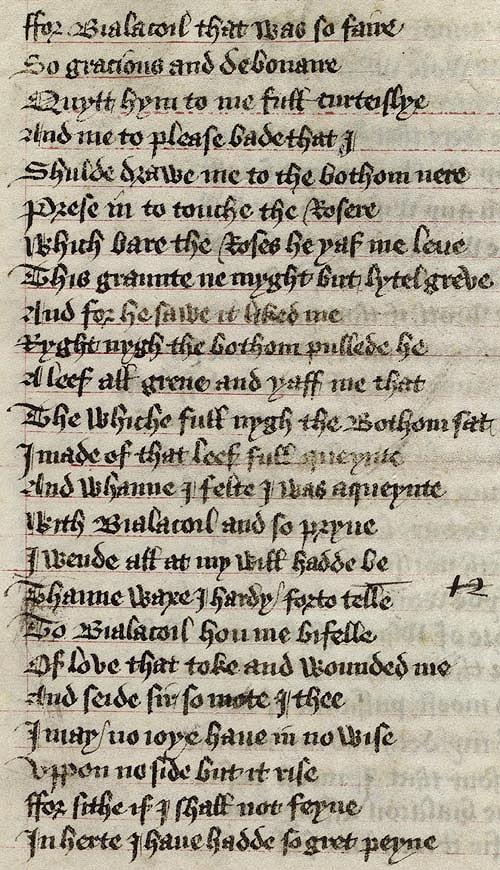 ffor Bialacoil that was so faire
So gracious and debonaire
Quytt hym to me full curteislye
And me to please bade that I
Shulde drawe me to the bothom nere
Prese in to touche the Rosere
Which bare the Roses he yaf me leue
This graunte ne myght but lytel greve
And for he sawe it liked me
Ryght nygh the bothom pullede he
A leef all grene and yaff me that
The whiche full nygh the Bothom sat
I made of that leef full queynte
And whanne I felte I was aqueynte
With Bialacoil and so pryue
I wende all at my will hadde be
Thanne waxe I hardy / forto telle
To Bialacoil hou me bifelle
Of love that toke and wounded me
And seide sir so mote I thee
I may / no ioye haue in no wise
Vppon no side but it rise
ffor sithe if I shall not feyne
In herte I haue hadde so gret peyne